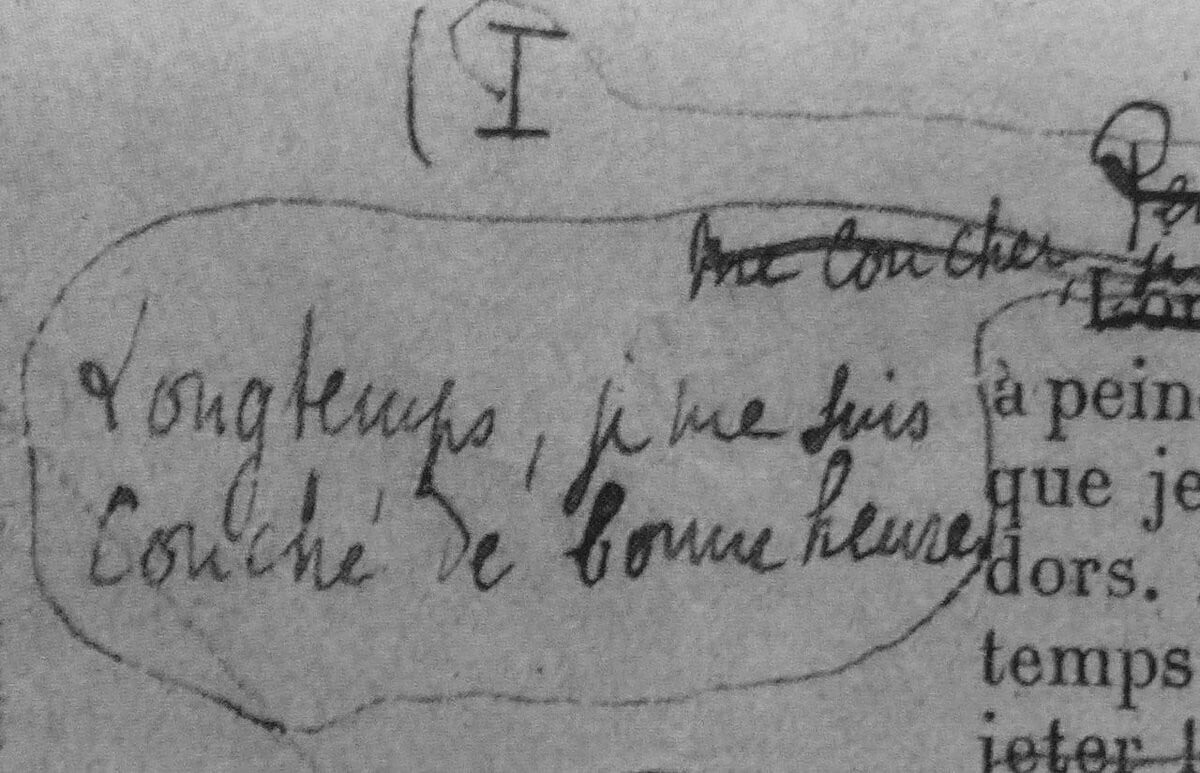 ( I
me coucher
Longtemps, je me suis
couché de bonne heure
à pein
que je
dors.
temps
jeter l